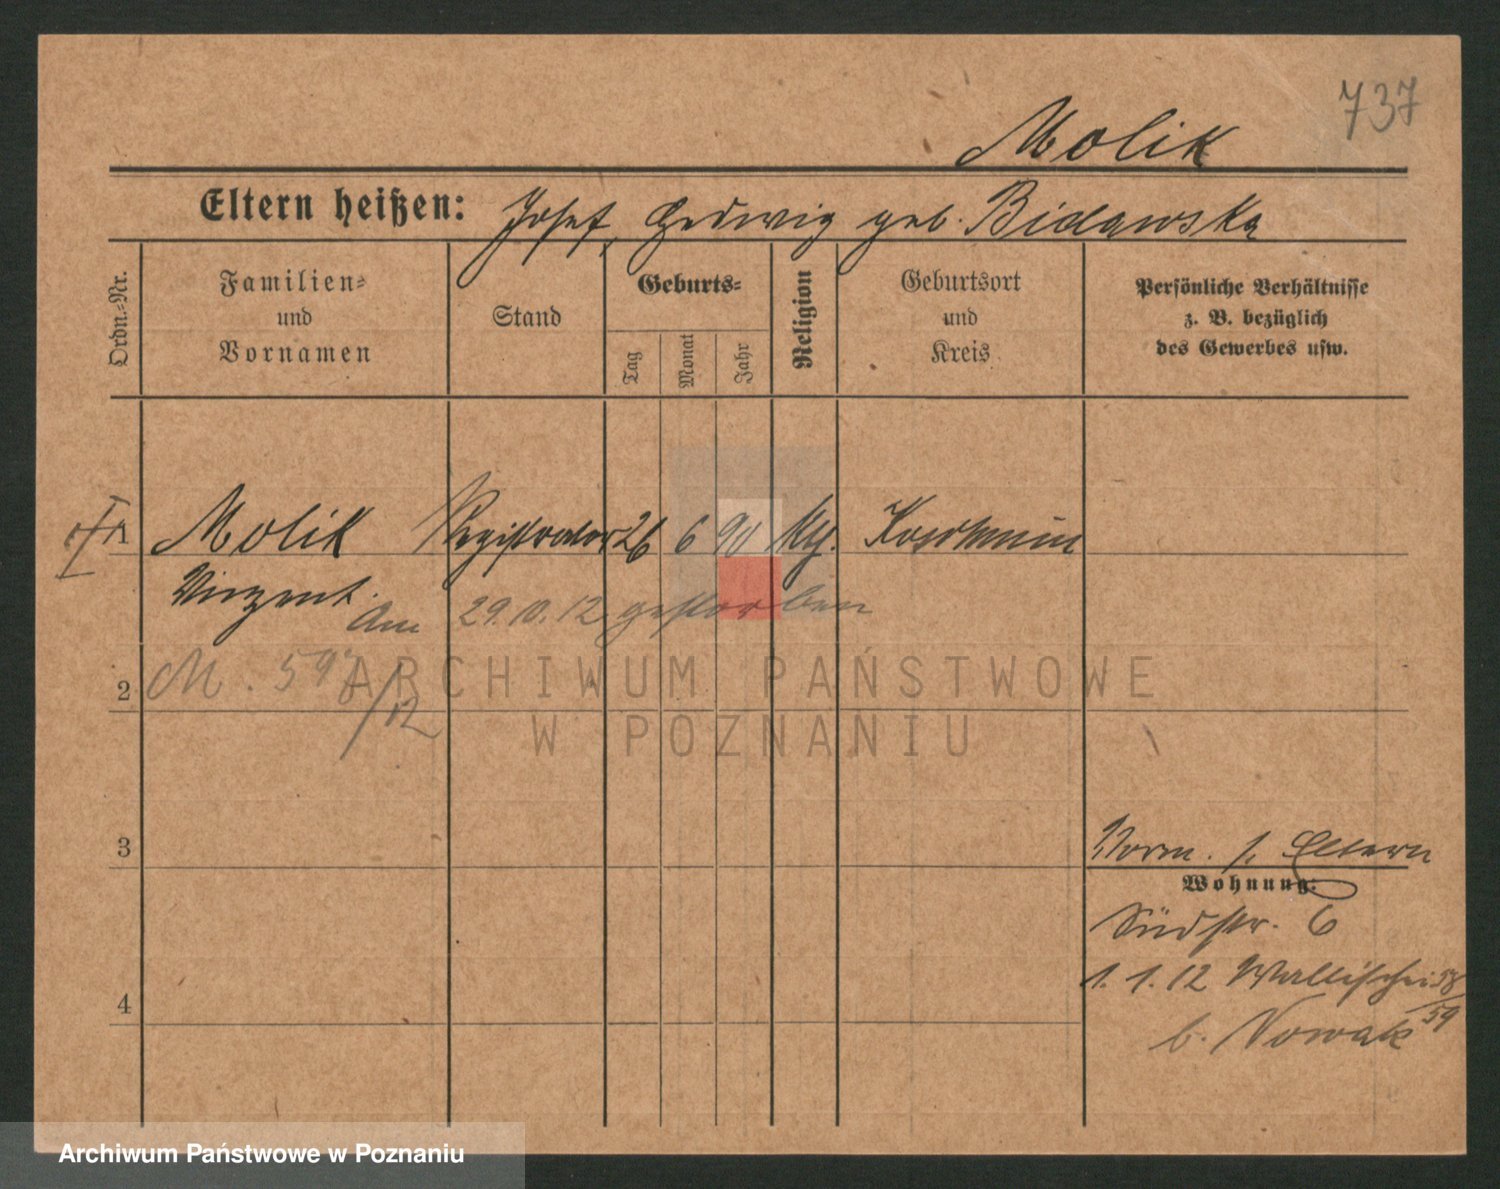 737
Molik
Eltern heißen: Josef, Hedwig geb. Bidawska
Ordn.-Nr.
Familien-
und
Vornamen
Stand
Geburts-
Tag
Monat
Jahr
Religion
Geburtsort
und
Kreis
Persönliche Verhältnisse
z. B. bezüglich
des Gewerbes usw.
1 Molik Registrator 26 6 90 kth. Koschmin
Vinzent.
Am 29.10.12 gestorben
2 M. 598/12
ARCHIWUM PAŃSTWOWE
W POZNANIU
3
Vorm. s. Eltern
Wohnung:
Südstr. 6
1.1.12 Wallischei 58/59
b. Nowak
4
Archiwum Państwowe w Poznaniu